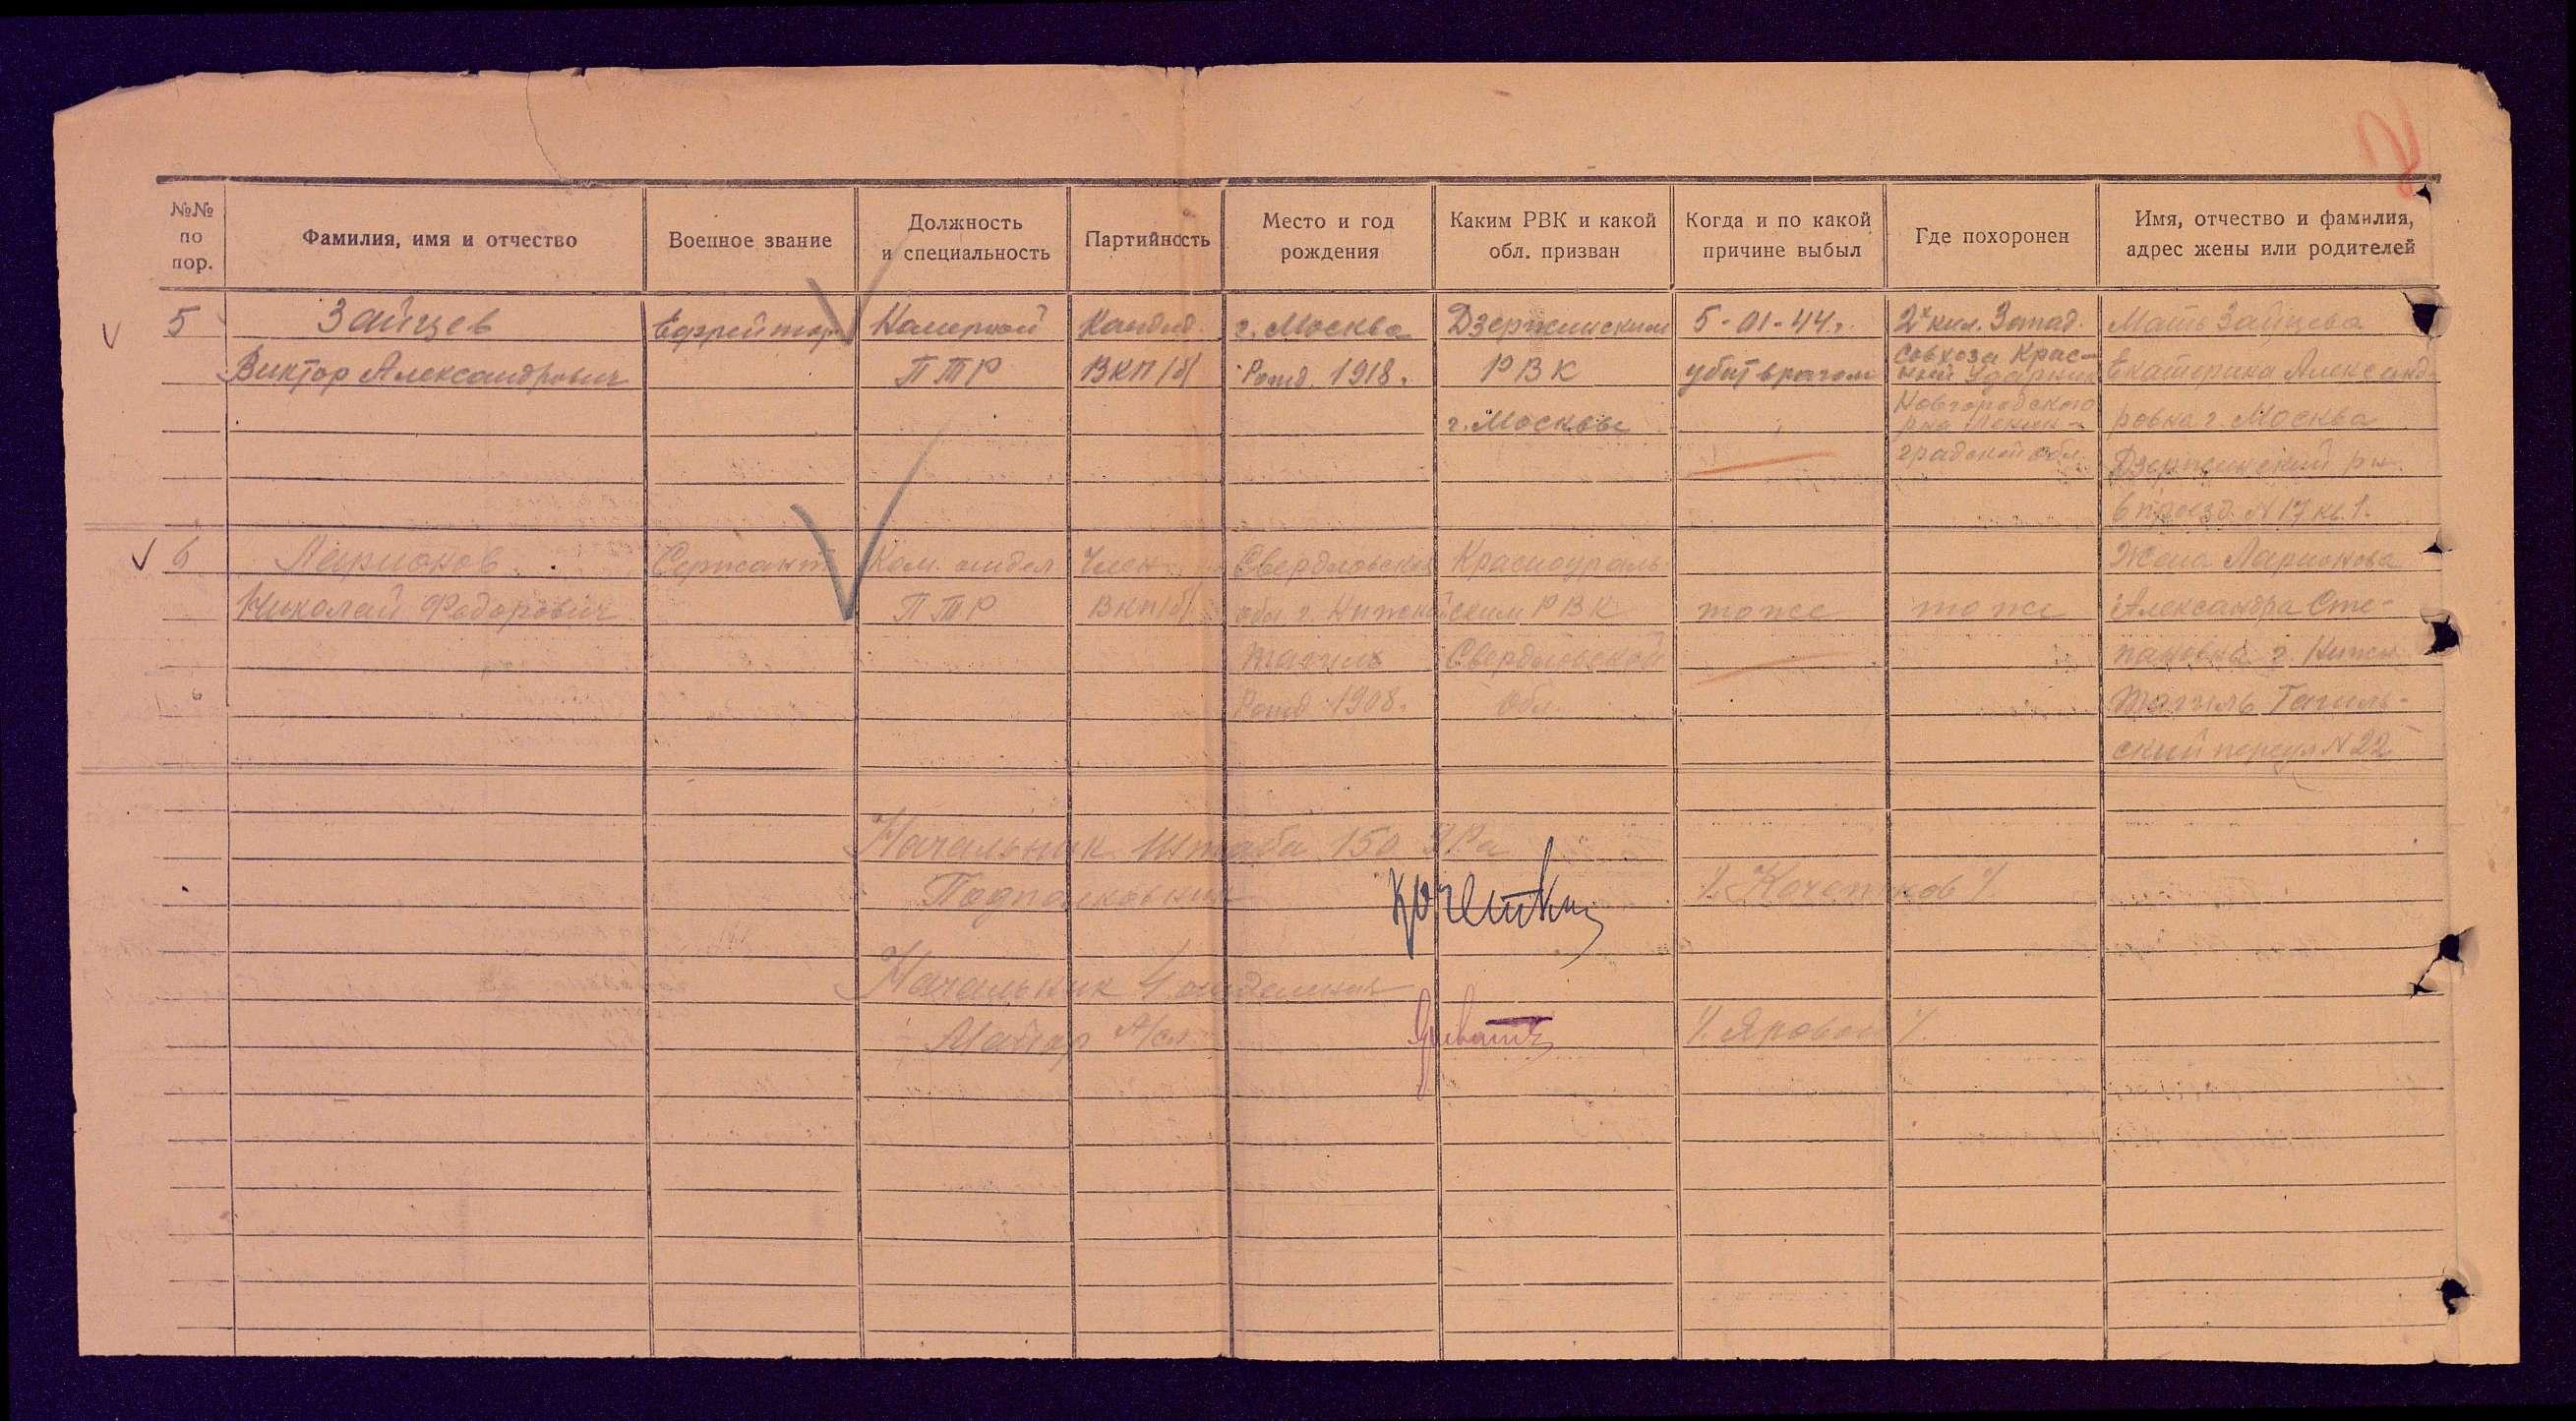 №№ по пор.
Фамилия, имя и отчество
Военное звание
Должность и специальность
Партийность
Место и год рождения
Каким РВК и какой обл. призван
Когда и по какой причине выбыл
Где похоронен
Имя, отчество и фамилия, адрес жены или родителей
5
Зайцев
Виктор Александрович
Ефрейтор
Номерной
ПТР
Кандид.
ВКП/б/
г. Москва
Рожд. 1918.
Дзержинским
РВК
г. Москвы
5-01-44г.
убит врагом
2х кил. Запад.
совхоза Крас-
ный Ударник
Новгородского
р-на Ленин-
градской обл.
Мать Зайцева
Екатерина Александ-
ровна г. Москва
Дзержинский р-н
6 проезд N 17 кв. 1.
6
Ларионов
Николай Федорович
Сержант
Ком. отдел
ПТР
Член
ВКП/б/
Свердловская
обл г. Нижний
Тагиль
Рожд 1908.
Красноураль-
ским РВК
Свердловской
Обл.
то же
то же
Жена Ларионова
Александра Сте-
пановна г. Нижн.
Тагиль Тагиль-
ский переул N 22
Начальник Штаба 150
Подполковник
/. Кочетков /.
Начальник 4 отделения
Майор А/сл
/. Яровой /.